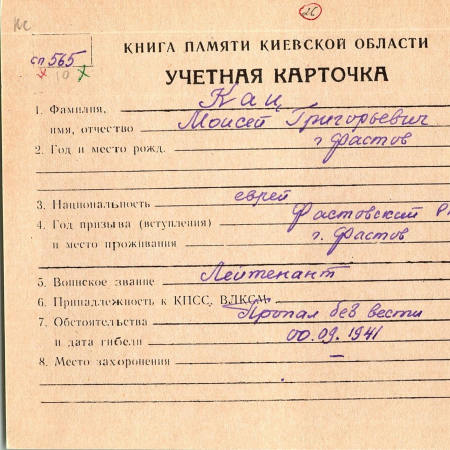 26
сп 565
10
КНИГА ПАМЯТИ КИЕВСКОЙ ОБЛАСТИ
УЧЕТНАЯ КАРТОЧКА
1. Фамилия, Кац
имя, отчество Моисей Григорьевич
2. Год и место рожд. г Фастов
3. Национальность еврей
4. Год призыва (вступления) Фастовский
и место проживания г. Фастов
5. Воинское звание Лейтенант
6. Принадлежность к КПСС, ВЛКСМ
7. Обстоятельства Пропал без вести
и дата гибели 00.09.1941
8. Место захоронения —